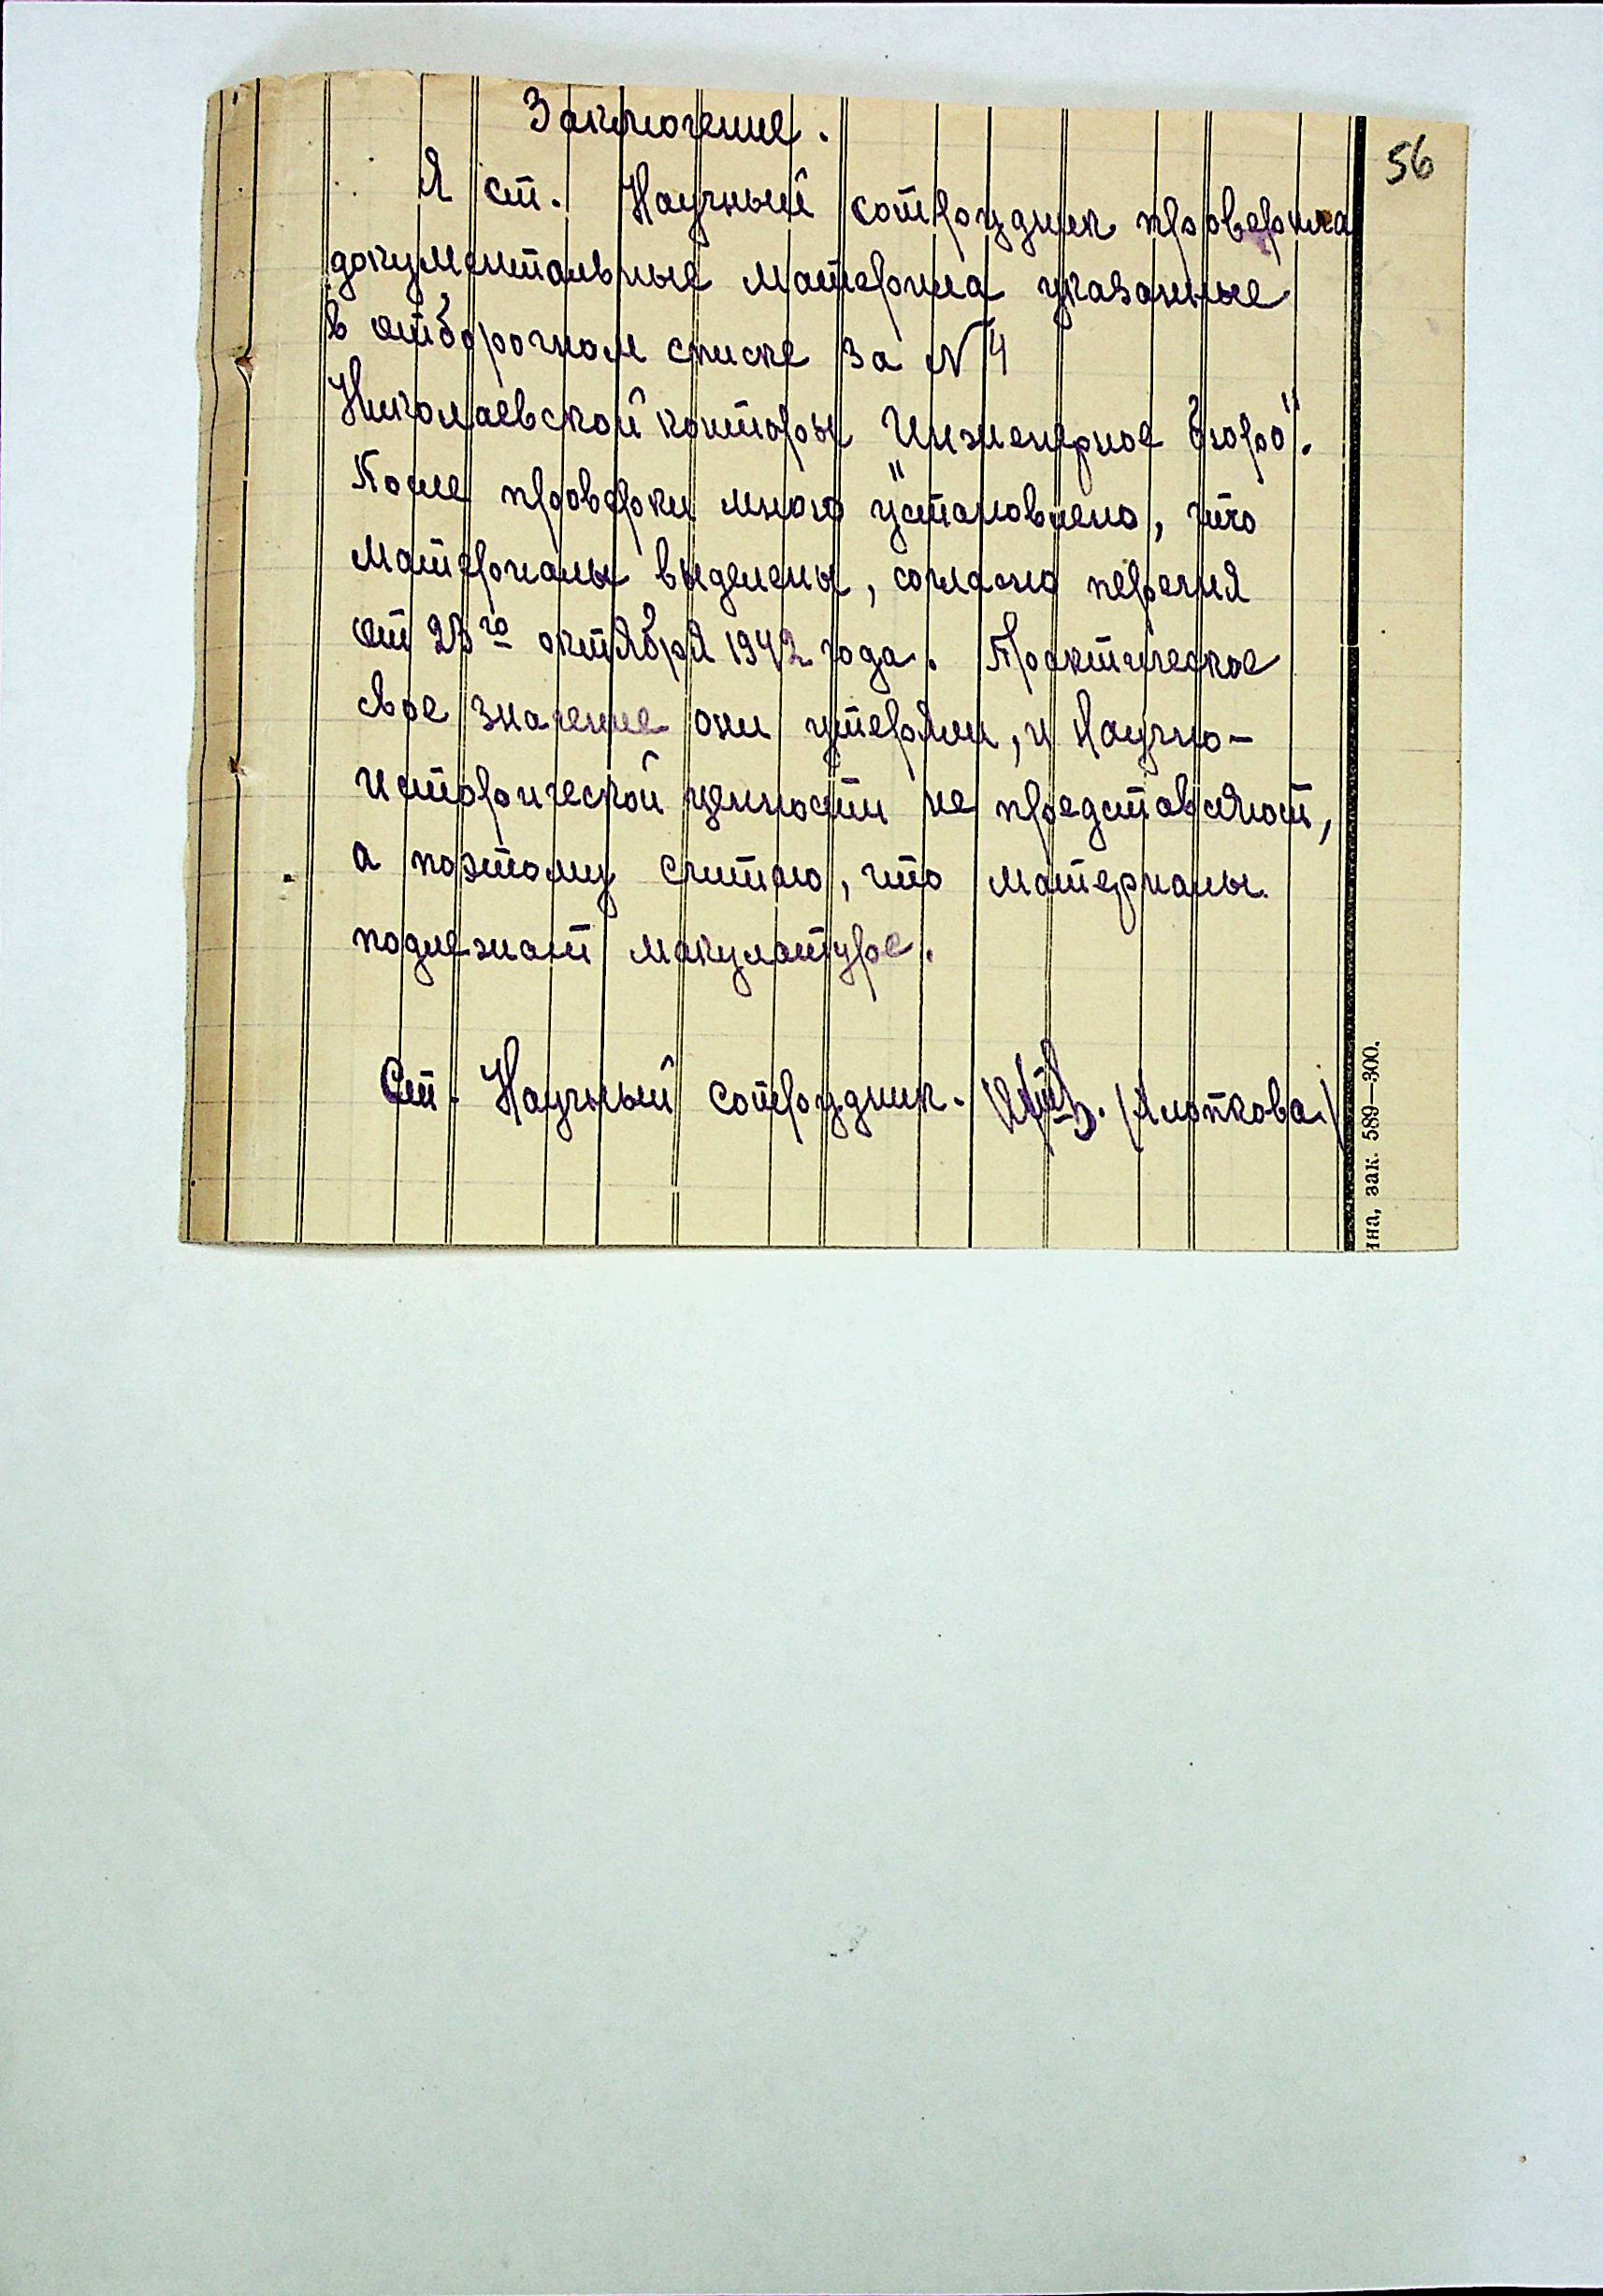 56
Заключение.
Я ст. Научный сотрудник проверила
документальные материла указанные
в отборочном списке за N 4
Николаевской конторы „Инженерное бюро".
После проверки мною установлено, что
материалы выделены, согласно перечня
от 23го октября 1942 года. Практическое
свое значение они утеряли, и научно-
исторической ценности не представляют,
а поэтому считаю, что материалы
подлежат макулатуре.
Ст. Научный сотрудник. /Клопкова./
на, зак. 589—300.